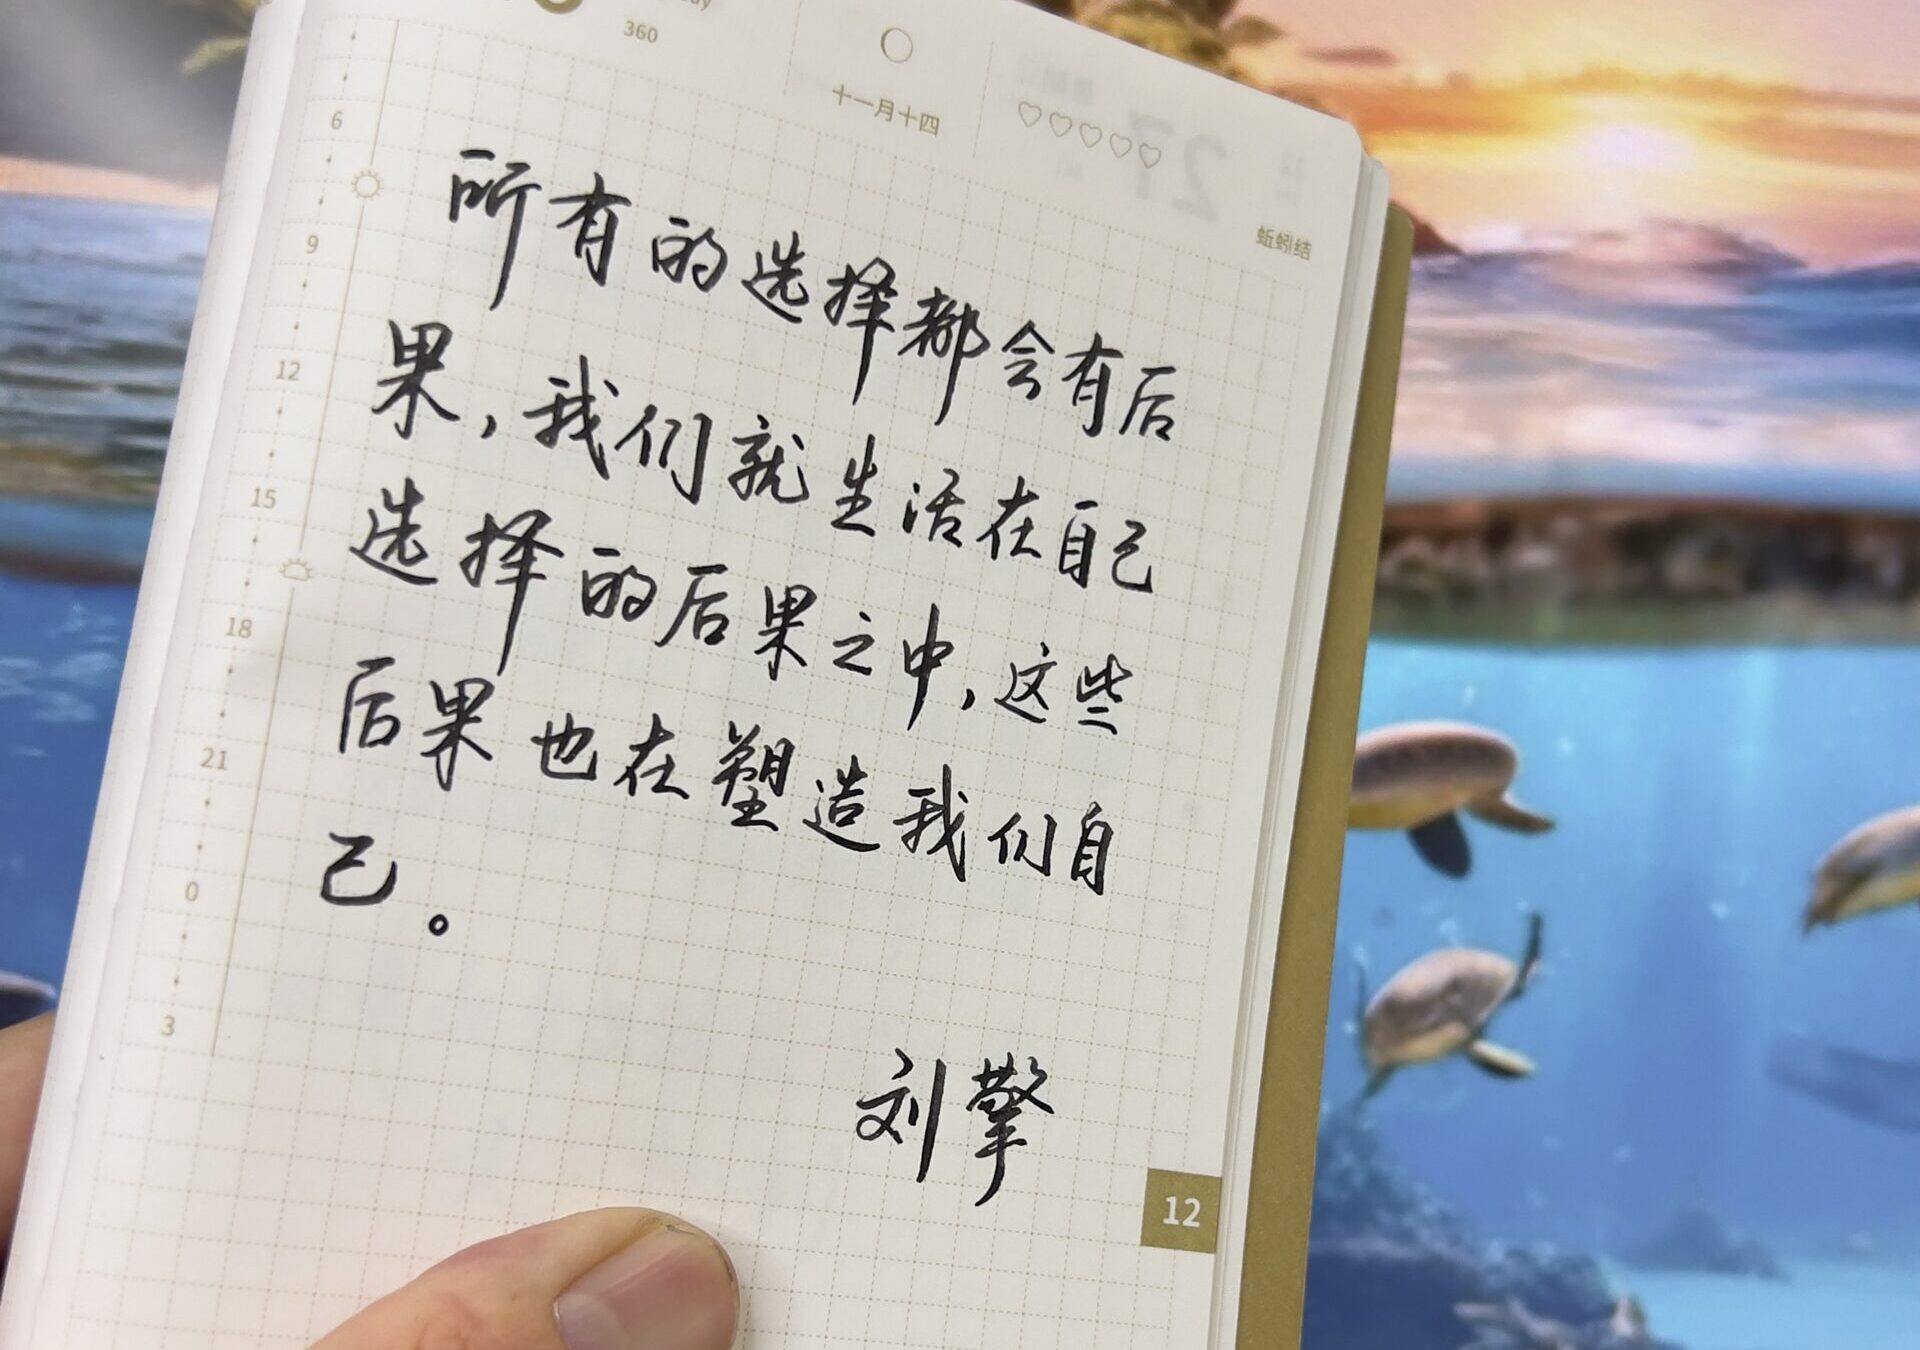 360
十一月十四
蚯蚓结
6
9
12
15
18
21
0
3
所有的选择都会有后
果，我们就生活在自己
选择的后果之中，这些
后果也在塑造我们自
己。
刘擎
12